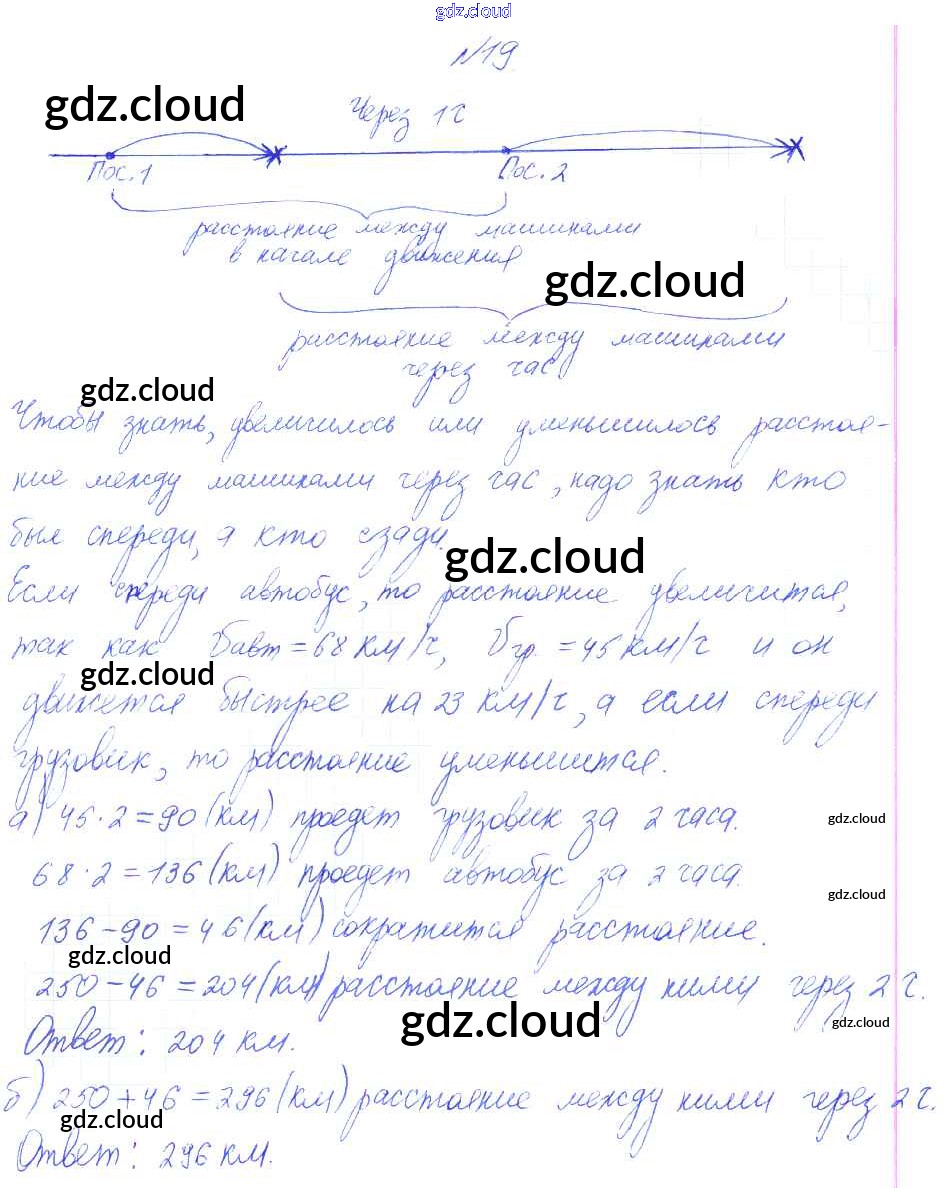 gdz.cloud
№19.
gdz.cloud
Через 1 ч
Пос. 1 Пос. 2
расстояние между машинами
в начале движения
gdz.cloud
расстояние между машинами
через час
gdz.cloud
Чтобы знать, увеличилось или уменьшилось расстоя-
ние между машинами через час, надо знать кто
был спереди, а кто сзади.
gdz.cloud
Если спереди автобус, то расстояние увеличится,
так как Vавт = 68 км/ч, Vгр. = 45 км/ч и он
gdz.cloud
движется быстрее на 23 км/ч, а если спереди
грузовик, то расстояние уменьшится.
а) 45 · 2 = 90 (км) проедет грузовик за 2 часа.
gdz.cloud
68 · 2 = 136 (км) проедет автобус за 2 часа.
gdz.cloud
136 – 90 = 46 (км) сократится расстояние.
gdz.cloud
250 – 46 = 204 (км) расстояние между ними через 2 ч.
gdz.cloud
gdz.cloud
Ответ: 204 км.
б) 250 + 46 = 296 (км) расстояние между ними через 2 ч.
gdz.cloud
Ответ: 296 км.